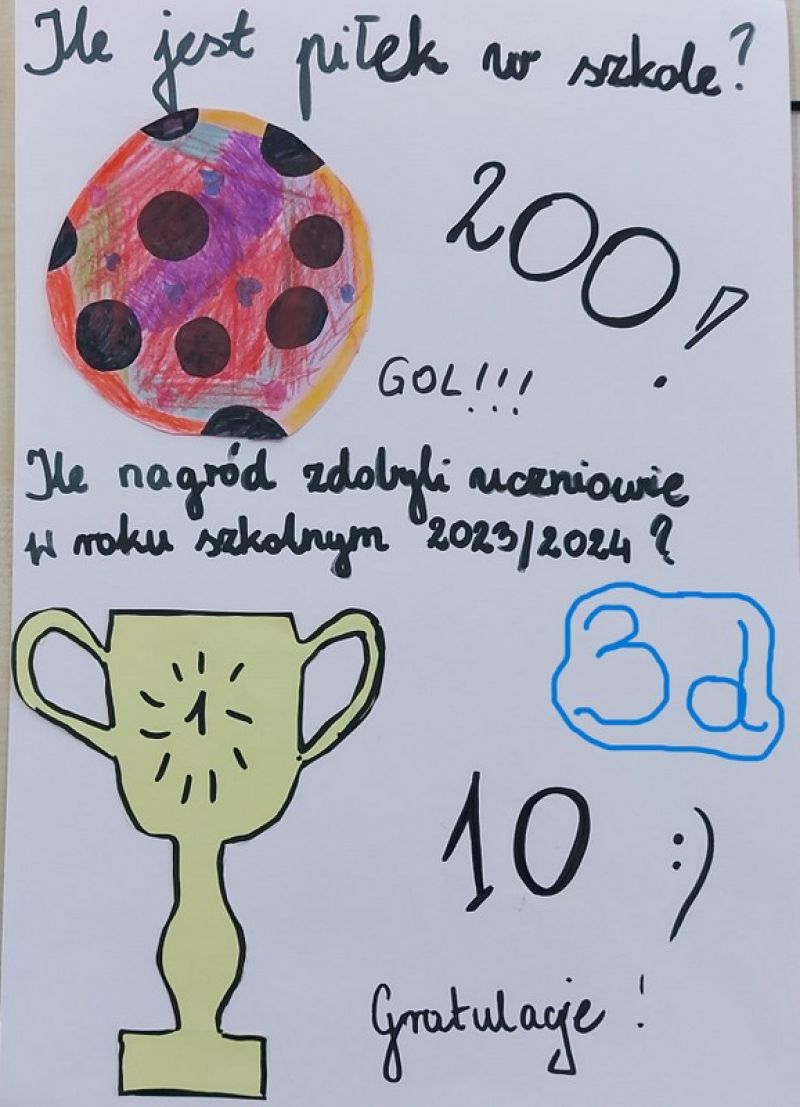 Ile jest piłek w szkole?
200!
GOL!!!
Ile nagród zdobyli uczniowie
w roku szkolnym 2023/2024?
1
3d
10 :)
Gratulacje!